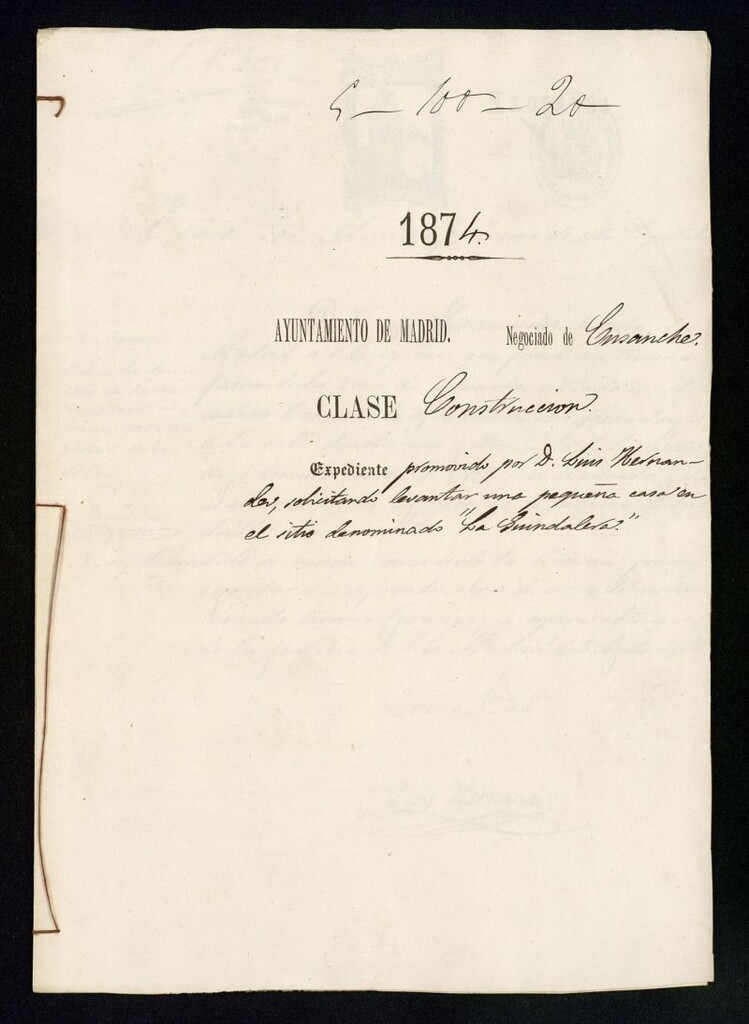 5-100-20
1874.
AYUNTAMIENTO DE MADRID. Negociado de Ensanche.
CLASE Construccion.
Expediente promovido por D. Luis Hernan-
dez, solicitando levantar una pequeña casa en
el sitio denominado "La Guindalera."